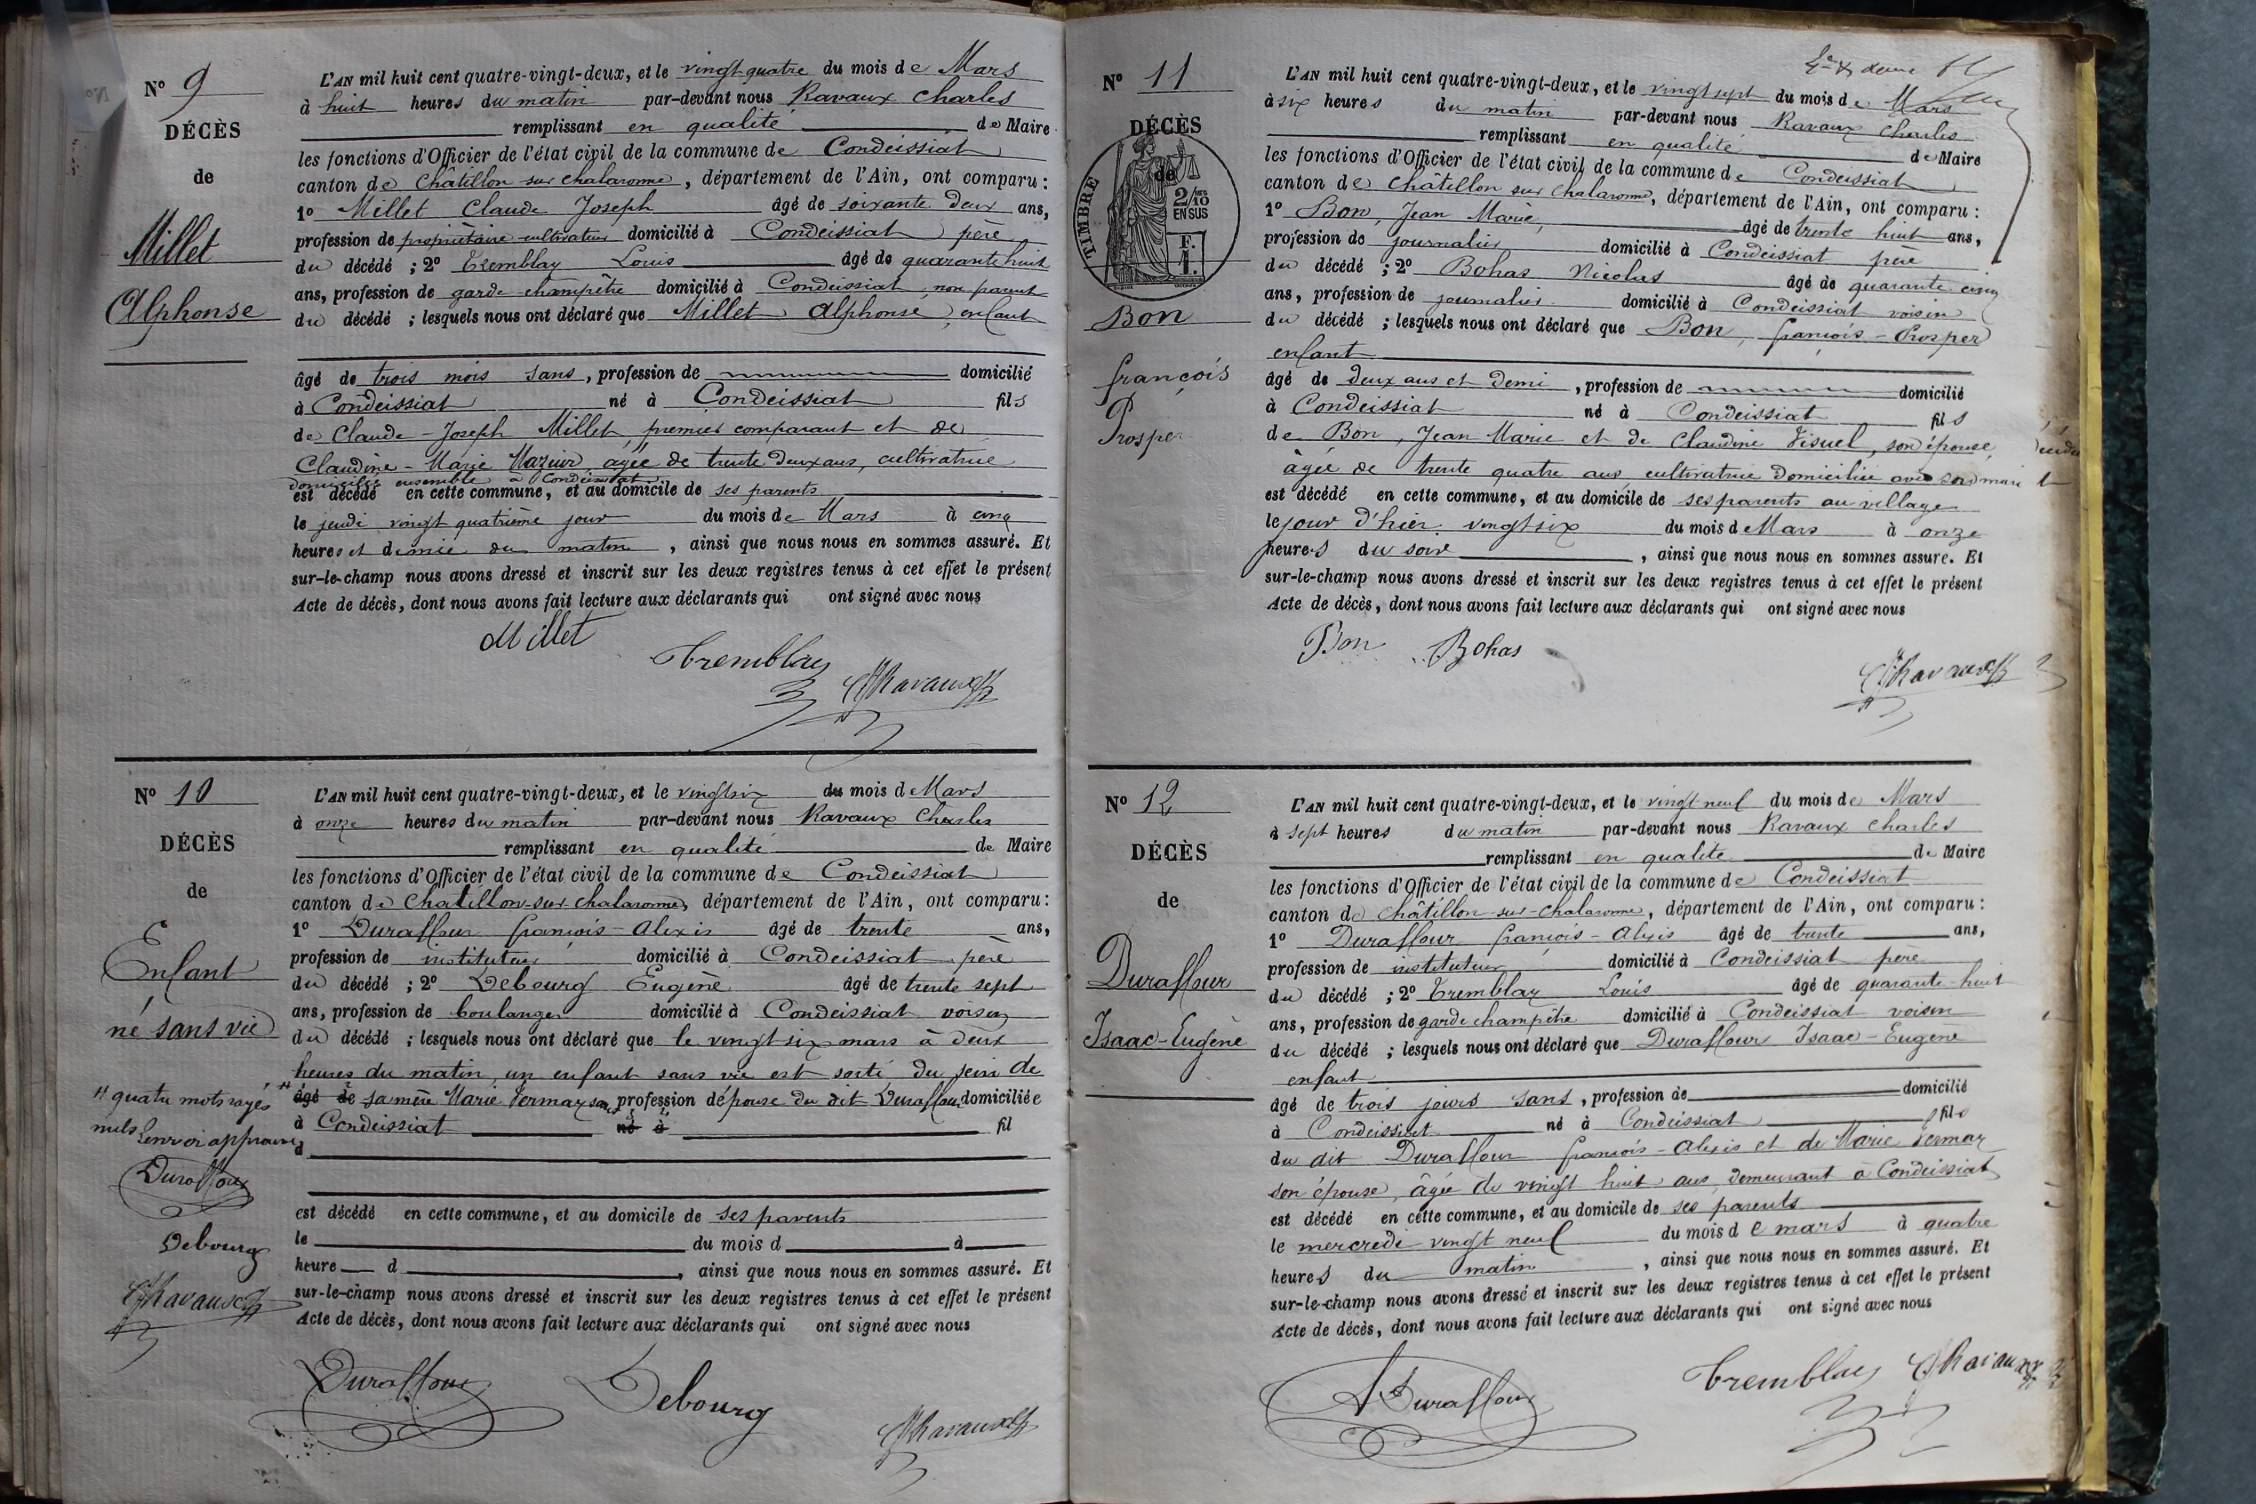 N° 9
DÉCÈS
de
Millet
Alphonse
L'AN mil huit cent quatre-vingt-deux, et le vingt quatre du mois de Mars
à huit heures du matin par-devant nous Ravaux Charles
remplissant en qualité de Maire
les fonctions d'Officier de l'état civil de la commune de Condeissiat
canton de Châtillon sur chalaronne, département de l'Ain, ont comparu :
1° Millet Claude Joseph âgé de soixante deux ans,
profession de propriétaire cultivateur domicilié à Condeissiat père
du décédé ; 2° Tremblay Louis âgé de quarante huit
ans, profession de garde champêtre domicilié à Condeissiat, non parent
du décédé ; lesquels nous ont déclaré que Millet Alphonse, enfant
âgé de trois mois sans, profession de domicilié
à Condeissiat né à Condeissiat fils
de Claude-Joseph Millet, premier comparant et de
Claudine-Marie Mazuir, agée de trente deux ans, cultivatrice
domiciliés ensemble à Condeissiat
est décédé en cette commune, et au domicile de ses parents
le jeudi vingt quatrième jour du mois de Mars à cinq
heures et demie du matin, ainsi que nous nous en sommes assuré. Et
sur-le-champ nous avons dressé et inscrit sur les deux registres tenus à cet effet le présent
Acte de décès, dont nous avons fait lecture aux déclarants qui ont signé avec nous
Millet
Tremblay
ChRavaux
N° 10
DÉCÈS
de
Enfant
né sans vie
" quatre mots rayés
nuls, renvoi approuvé
Duraffour
Debourg
ChRavaux
L'AN mil huit cent quatre-vingt-deux, et le vingt six du mois de Mars
à onze heures du matin par-devant nous Ravaux Charles
remplissant en qualité de Maire
les fonctions d'Officier de l'état civil de la commune de Condeissiat
canton de Chatillon-sur-chalaronne, département de l'Ain, ont comparu :
1° Duraffour françois-Alexis âgé de trente ans,
profession de instituteur domicilié à Condeissiat père
du décédé ; 2° Debourg Eugène âgé de trente sept
ans, profession de boulanger domicilié à Condeissiat voisin
du décédé ; lesquels nous ont déclaré que le vingt six mars à deux
heures du matin, un enfant sans vie est sorti du sein de
âgé de sa mère Marie Vermay sans profession d'épouse du dit Duraffour, domiciliée
à Condeissiat né à fil
d
est décédé en cette commune, et au domicile de ses parents
le du mois d à
heure d, ainsi que nous nous en sommes assuré. Et
sur-le-champ nous avons dressé et inscrit sur les deux registres tenus à cet effet le présent
Acte de décès, dont nous avons fait lecture aux déclarants qui ont signé avec nous
Duraffour
Debourg
ChRavaux
N° 11
DÉCÈS
de
TIMBRE
2/10
EN SUS
F.
1.
Bon
françois
Prosper
L'AN mil huit cent quatre-vingt-deux, et le vingt sept du mois de Mars
à six heures du matin par-devant nous Ravaux Charles
remplissant en qualité de Maire
les fonctions d'Officier de l'état civil de la commune de Condeissiat
canton de Châtillon sur chalaronne, département de l'Ain, ont comparu :
1° Bon, Jean Marie, âgé de trente huit ans,
profession de journalier domicilié à Condeissiat père
du décédé ; 2° Bohas Nicolas âgé de quarante cinq
ans, profession de journalier domicilié à Condeissiat voisin
du décédé ; lesquels nous ont déclaré que Bon, françois-Prosper
enfant
âgé de deux ans et demi, profession de domicilié
à Condeissiat né à Condeissiat fils
de Bon, Jean Marie et de Claudine Visuel, son épouse,
âgée de trente quatre ans, cultivatrice domiciliée avec son mari
est décédé en cette commune, et au domicile de ses parents au village
le jour d'hier vingt six du mois de Mars à onze
heures du soir, ainsi que nous nous en sommes assuré. Et
sur-le-champ nous avons dressé et inscrit sur les deux registres tenus à cet effet le présent
Acte de décès, dont nous avons fait lecture aux déclarants qui ont signé avec nous
Bon Bohas
ChRavaux
N° 12
DÉCÈS
de
Duraffour
Isaac-Eugène
L'AN mil huit cent quatre-vingt-deux, et le vingt neuf du mois de Mars
à sept heures du matin par-devant nous Ravaux Charles
remplissant en qualité de Maire
les fonctions d'Officier de l'état civil de la commune de Condeissiat
canton de Châtillon-sur-chalaronne, département de l'Ain, ont comparu :
1° Duraffour françois-Alexis âgé de trente ans,
profession de instituteur domicilié à Condeissiat père
du décédé ; 2° Tremblay Louis âgé de quarante-huit
ans, profession de garde champêtre domicilié à Condeissiat voisin
du décédé ; lesquels nous ont déclaré que Duraffour Isaac-Eugène
enfant
âgé de trois jours sans, profession de domicilié
à Condeissiat né à Condeissiat fils
du dit Duraffour françois-Alexis et de Marie Vermay
son épouse, âgée de vingt huit ans, demeurant à Condeissiat
est décédé en cette commune, et au domicile de ses parents
le mercredi vingt neuf du mois de mars à quatre
heures du matin, ainsi que nous nous en sommes assuré. Et
sur-le-champ nous avons dressé et inscrit sur les deux registres tenus à cet effet le présent
Acte de décès, dont nous avons fait lecture aux déclarants qui ont signé avec nous
ADuraffour
Tremblay ChRavaux